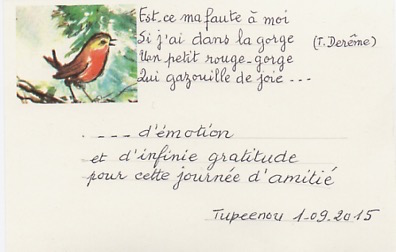 Est-ce ma faute à moi
Si j'ai dans la gorge (T. Derême)
Un petit rouge-gorge
Qui gazouille de joie ---
. --- d'émotion
et d'infinie gratitude
pour cette journée d'amitié
Tupeenou 1-09.2015